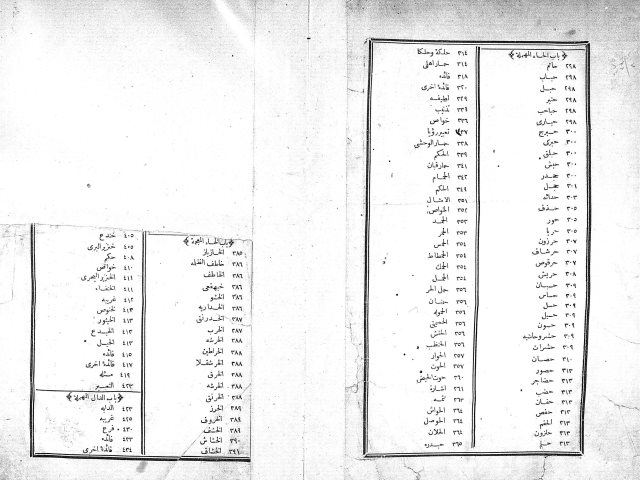 ﴿باب الحاء المهملة﴾
٢٩٨ حاتم
٢٩٨ حباب
٢٩٨ حبل
٢٩٨ حبتر
٢٩٨ حباحب
٢٩٨ حبارى
٣٠٠ حبرج
٣٠٠ حبركى
٣٠٠ حبلق
٣٠٠ حبش
٣٠٠ جحدر
٣٠١ حجل
٣٠٣ حدأه
٣٠٥ حذف
٣٠٥ حور
٣٠٥ حربا
٣٠٧ حرذون
٣٠٧ حرشاف
٣٠٧ حرقوص
٣٠٨ حريش
٣٠٨ حسبان
٣٠٩ حساس
٣٠٩ حسل
٣٠٩ حسيل
٣٠٩ حسون
٣٠٩ حشرات
٣١٠ حصان
٣١٣ حصور
٣١٣ حضاجر
٣١٣ حضب
٣١٣ حفان
٣١٣ حفص
٣١٣ الحقم
٣١٣ حلزون
٣١٣ حلم
٣١٤ حلكة وحلكا
٣١٤ حمار أهلى
٣١٨ فائده
٣٢٠ فائدة اخرى
٣٢٩ لطيفه
٣٣٦ خواص
٣٣٧ تعبير رؤيا
٣٣٨ حمار الوحشى
٣٣٩ الحكم
٣٤١ حمارقبان
٣٤٢ الحمام
٣٤٩ الحكم
٣٥١ الامثال
٣٥٢ الخواص
٣٥٣ الحمد
٣٥٣ الحمر
٣٥٤ الحمس
٣٥٤ الحمطاط
٣٥٤ الحمك
٣٥٤ الحمل
٣٥٦ حنان
٣٥٦ الحنش
٣٥٦ الحنظب
٣٥٧ الحوار
٣٥٧ الحوت
٣٦٠ حوت الحيض
٣٦١ اشارة
٣٦٢ تتمه
٣٦٤ الحواس
٣٦٤ الحوصل
٣٦٤ الحلان
٣٦٥ حيدره
﴿باب الخاء المعجمة﴾
٣٨٥ الخازباز
٣٨٦ خاطف الظله
٣٨٦ الخاطف
٣٨٦ خبهقعى
٣٨٦ الخثق
٣٨٦ الخداريه
٣٨٧ الخدرنق
٣٨٧ الخرب
٣٨٨ الخرشه
٣٨٨ الخراطين
٣٨٨ الخرشقلا
٣٨٨ الخرق
٣٨٨ الخرنق
٣٨٩ الخزز
٣٨٩ الخروف
٣٨٩ الخشف
٣٩٠ الخشاش
٣٩١ الخفاش
٤٠٥ خندع
٤٠٥ خنزير البرى
٤٠٨ حكم
٤١٠ خواص
٤١١ الخنزير البحرى
٤١١ الخنفساء
٤١٢ غريبه
٤١٣ الخنوص
٤١٣ الخيتور
٤١٣ الخيل
٤١٥ فائده
٤١٧ فائدة اخرى
٤١٩ مسئله
٤٢٣ التعبير
﴿باب الدال المهملة﴾
٤٢٣ الدابه
٤٢٥ غريبه
٤٣٠ فرع
٤٣٣ فائده
٤٣٤ فائدة اخرى